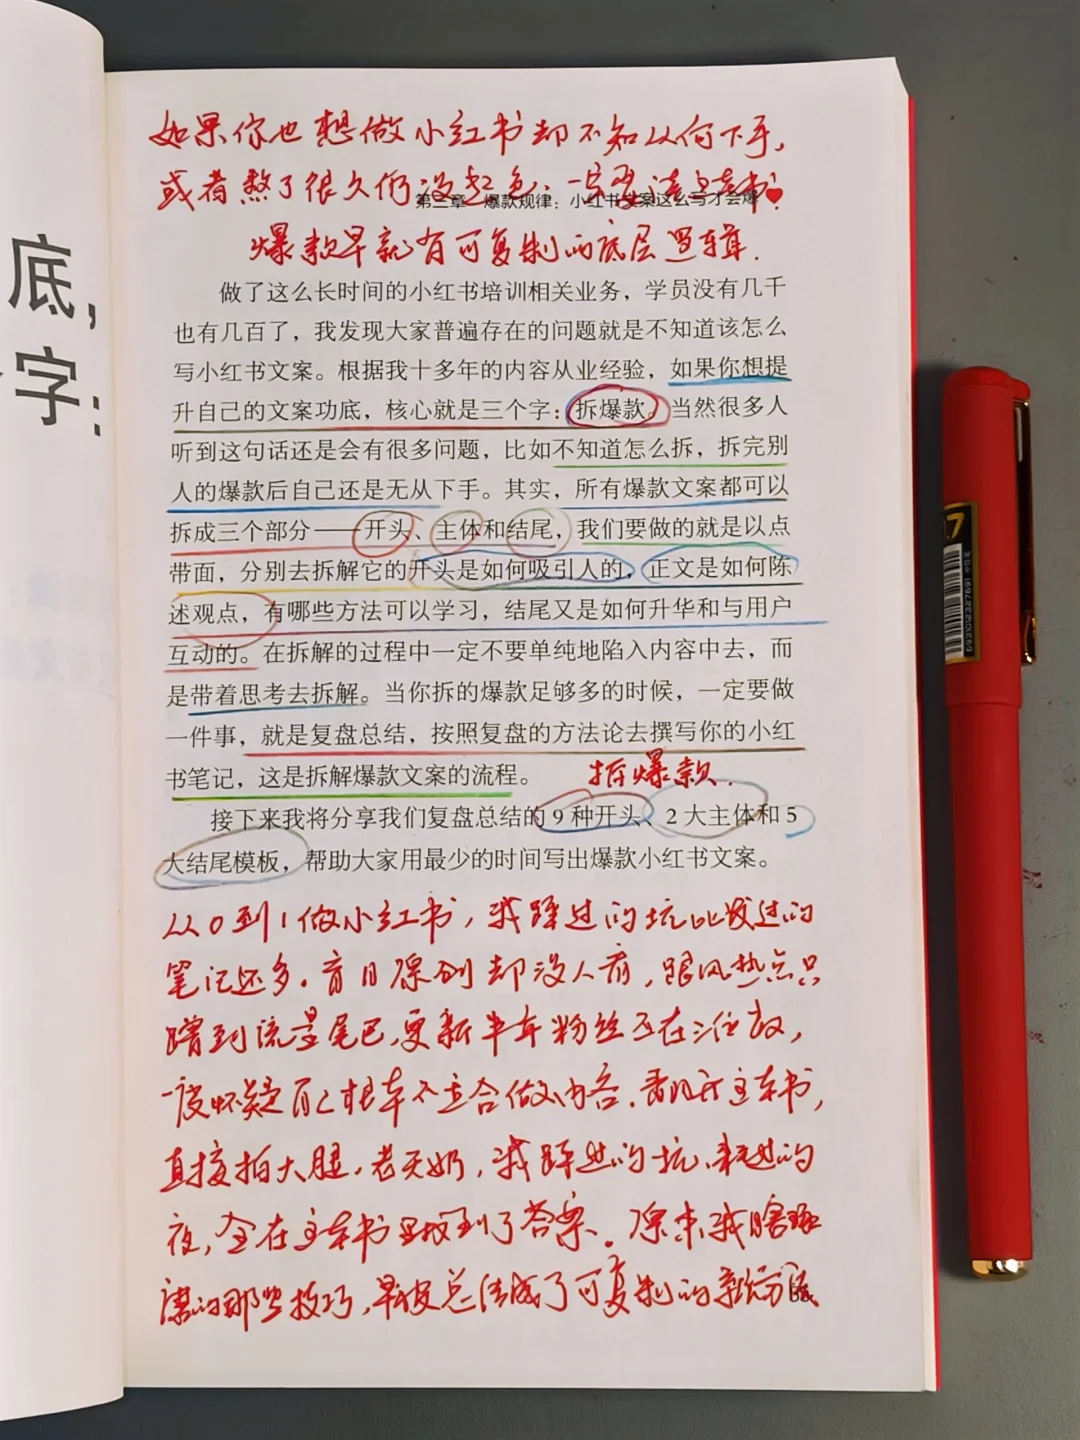 底，
字：
如果你也想做小红书却不知从何下手，
或者熬了很久仍没起色，一定要读这本书
第三章 爆款规律：小红书文案这么写才会爆
爆款早就有可复制的底层逻辑.
做了这么长时间的小红书培训相关业务，学员没有几千
也有几百了，我发现大家普遍存在的问题就是不知道该怎么
写小红书文案。根据我十多年的内容从业经验，如果你想提
升自己的文案功底，核心就是三个字：拆爆款。当然很多人
听到这句话还是会有很多问题，比如不知道怎么拆，拆完别
人的爆款后自己还是无从下手。其实，所有爆款文案都可以
拆成三个部分——开头、主体和结尾，我们要做的就是以点
带面，分别去拆解它的开头是如何吸引人的，正文是如何陈
述观点，有哪些方法可以学习，结尾又是如何升华和与用户
互动的。在拆解的过程中一定不要单纯地陷入内容中去，而
是带着思考去拆解。当你拆的爆款足够多的时候，一定要做
一件事，就是复盘总结，按照复盘的方法论去撰写你的小红
书笔记，这是拆解爆款文案的流程。
拆爆款.
接下来我将分享我们复盘总结的9种开头、2大主体和5
大结尾模板，帮助大家用最少的时间写出爆款小红书文案。
从0到1做小红书，我踩过的坑比发过的
笔记还多。盲目原创却没人看，跟风热点只
蹭到流量尾巴，更新半年粉丝还在三位数，
一度怀疑自己根本不适合做内容.翻开这本书，
直接拍大腿.老天奶，我踩过的坑、熬过的
夜，全在这本书里找到了答案。原来我瞎琢
磨的那些技巧，早被总结成了可复制的
0.7
6993012327691